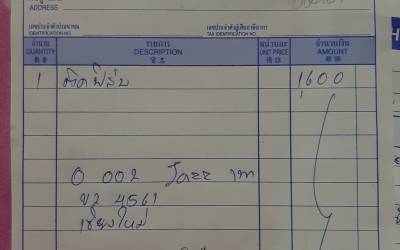 ADDRESS
เลขประจำตัวประชาชน เลขประจำตัวผู้เสียภาษีอากร
IDENTIFICATION NO. TAX IDENTIFICATION NO.
จำนวน รายการ หน่วยละ จำนวนเงิน
QUANTITY DESCRIPTION UNIT PRICE AMOUNT
數量 貨名
1 ติดฟิล์ม 1600
002 Jazz เทา
ขว 4561
เชียงใหม่